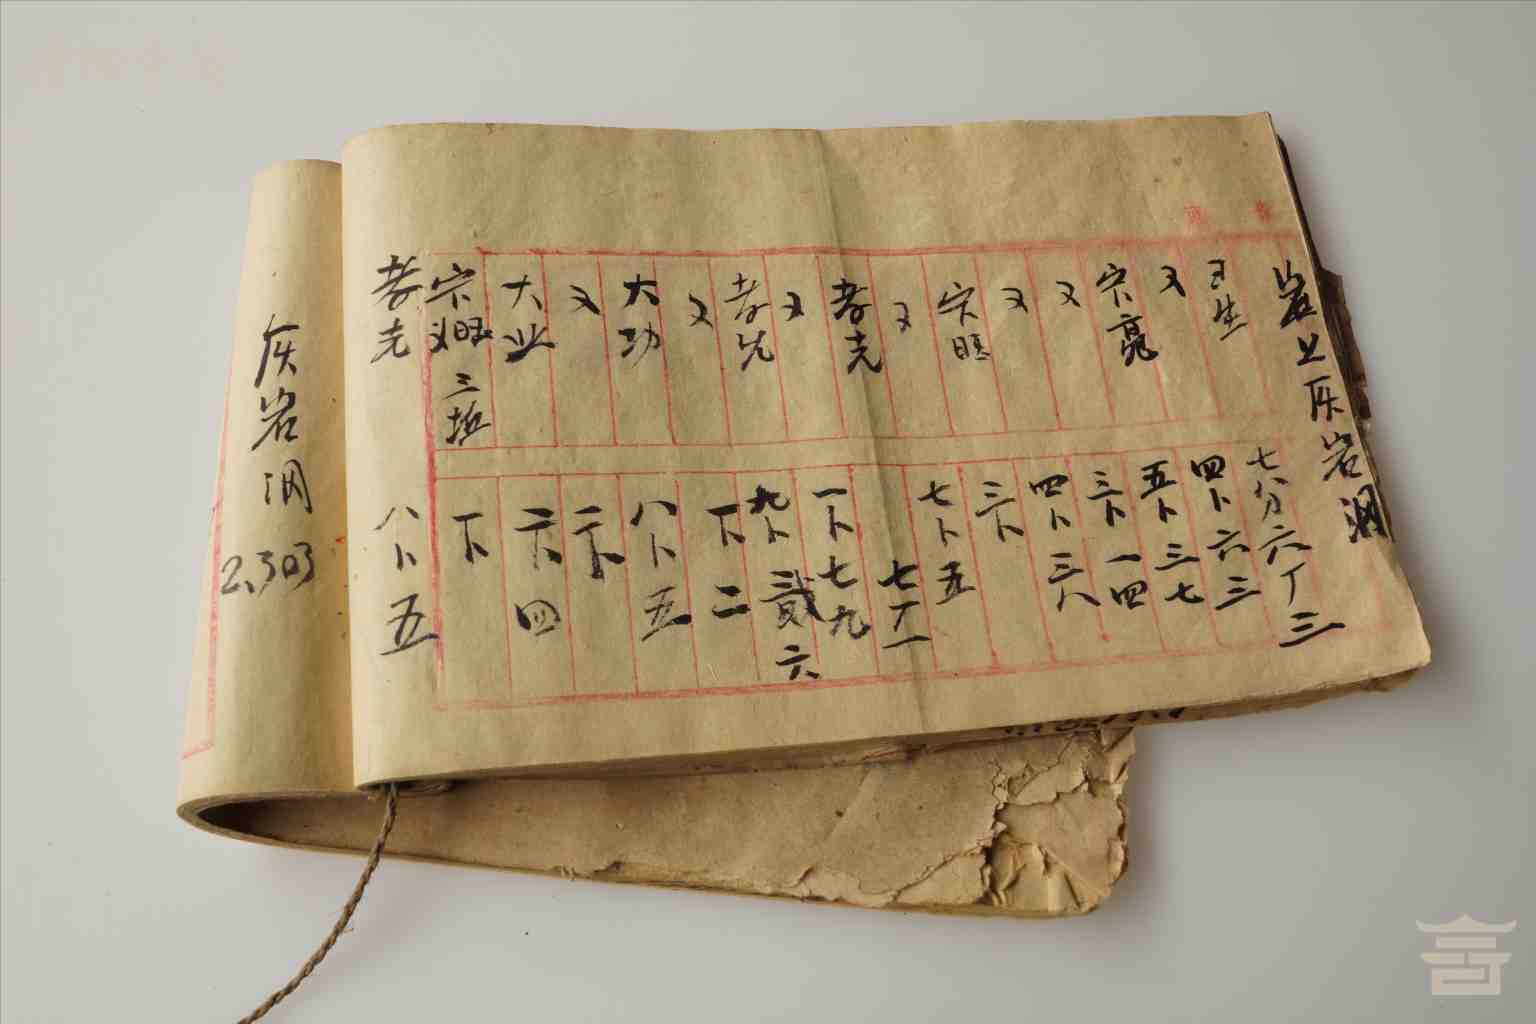 岩上灰岩洞
生
七八分六丁三
又
四卜六三
宗亮
五卜三七
又
三卜一四
又
四卜三八
宗旺
三卜
又
七卜五
孝先
七丁一
又
一卜七九
孝先
九卜贰六
又
下二
大功
八卜五
又
二卜
大业
六四
宗旺 三坵
下
孝先
八卜五
灰岩洞
2.303